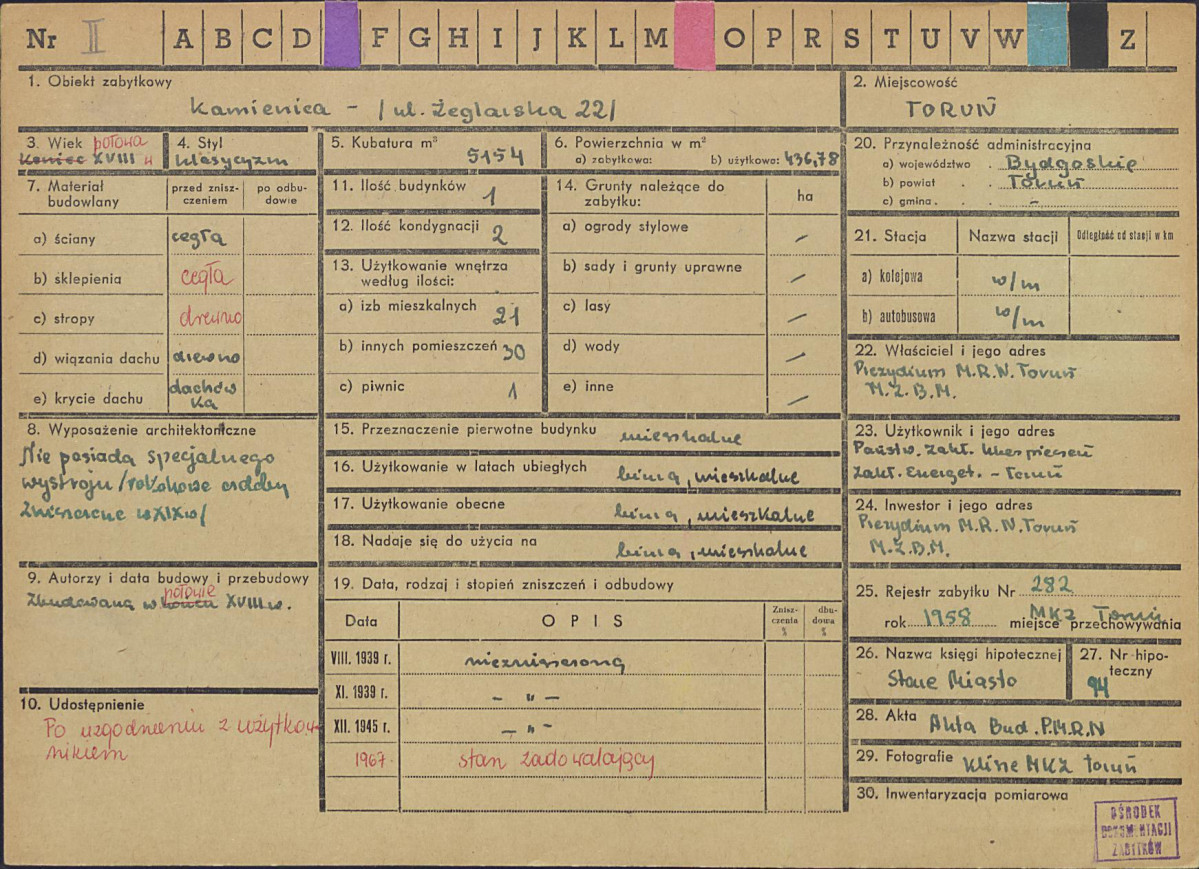 Nr II A B C D F G H I J K L M O P R S T U V W Z
1. Obiekt zabytkowy
Kamienica - /ul. Żeglarska 22/
2. Miejscowość
TORUŃ
3. Wiek połowa
Koniec XVIII w
4. Styl
klasycyzm
5. Kubatura m³
5154
6. Powierzchnia w m²
a) zabytkowa: b) użytkowa: 436,78
7. Materiał budowlany
przed zniszczeniem
po odbudowie
a) ściany cegła
b) sklepienia cegła
c) stropy drewno
d) wiązania dachu drewno
e) krycie dachu dachówka
8. Wyposażenie architektoniczne
Nie posiada specjalnego
wystroju /rokokowe ozdoby
zniszczone w XIX w/
9. Autorzy i data budowy i przebudowy
połowie
Zbudowana w końcu XVIII w.
10. Udostępnienie
Po uzgodnieniu z użytko-
nikiem
11. Ilość budynków 1
12. Ilość kondygnacji 2
13. Użytkowanie wnętrza
według ilości:
a) izb mieszkalnych 21
b) innych pomieszczeń 30
c) piwnic 1
14. Grunty należące do
zabytku:
ha
a) ogrody stylowe –
b) sady i grunty uprawne –
c) lasy –
d) wody –
e) inne –
15. Przeznaczenie pierwotne budynku mieszkalne
16. Użytkowanie w latach ubiegłych biura, mieszkalne
17. Użytkowanie obecne biura, mieszkalne
18. Nadaje się do użycia na biura, mieszkalne
19. Data, rodzaj i stopień zniszczeń i odbudowy
Data
OPIS
Znisz-
czenia
%
dbu-
dowa
%
VIII. 1939 r. niezniszczona
XI. 1939 r. – " –
XII. 1945 r. – " –
1967. stan zadowalający
20. Przynależność administracyjna
a) województwo . Bydgoskie
b) powiat . . Toruń
c) gmina . . –
21. Stacja
Nazwa stacji
Odległość od stacji w km
a) kolejowa w/m
b) autobusowa w/m
22. Właściciel i jego adres
Prezydium M.R.N. Toruń
M.Z.B.M.
23. Użytkownik i jego adres
Państw. Zakł. Ubezpieczeń
Zakł. Energet. – Toruń
24. Inwestor i jego adres
Prezydium M.R.N. Toruń
M.Z.B.M.
25. Rejestr zabytku Nr 282
rok 1958 miejsce przechowywania MKZ Toruń
26. Nazwa księgi hipotecznej
Stare Miasto
27. Nr hipo-
teczny
94
28. Akta Akta Bud. P.M.R.N
29. Fotografie Klisze MKZ Toruń
30. Inwentaryzacja pomiarowa
OŚRODEK
DOKUMENTACJI
ZABYTKÓW